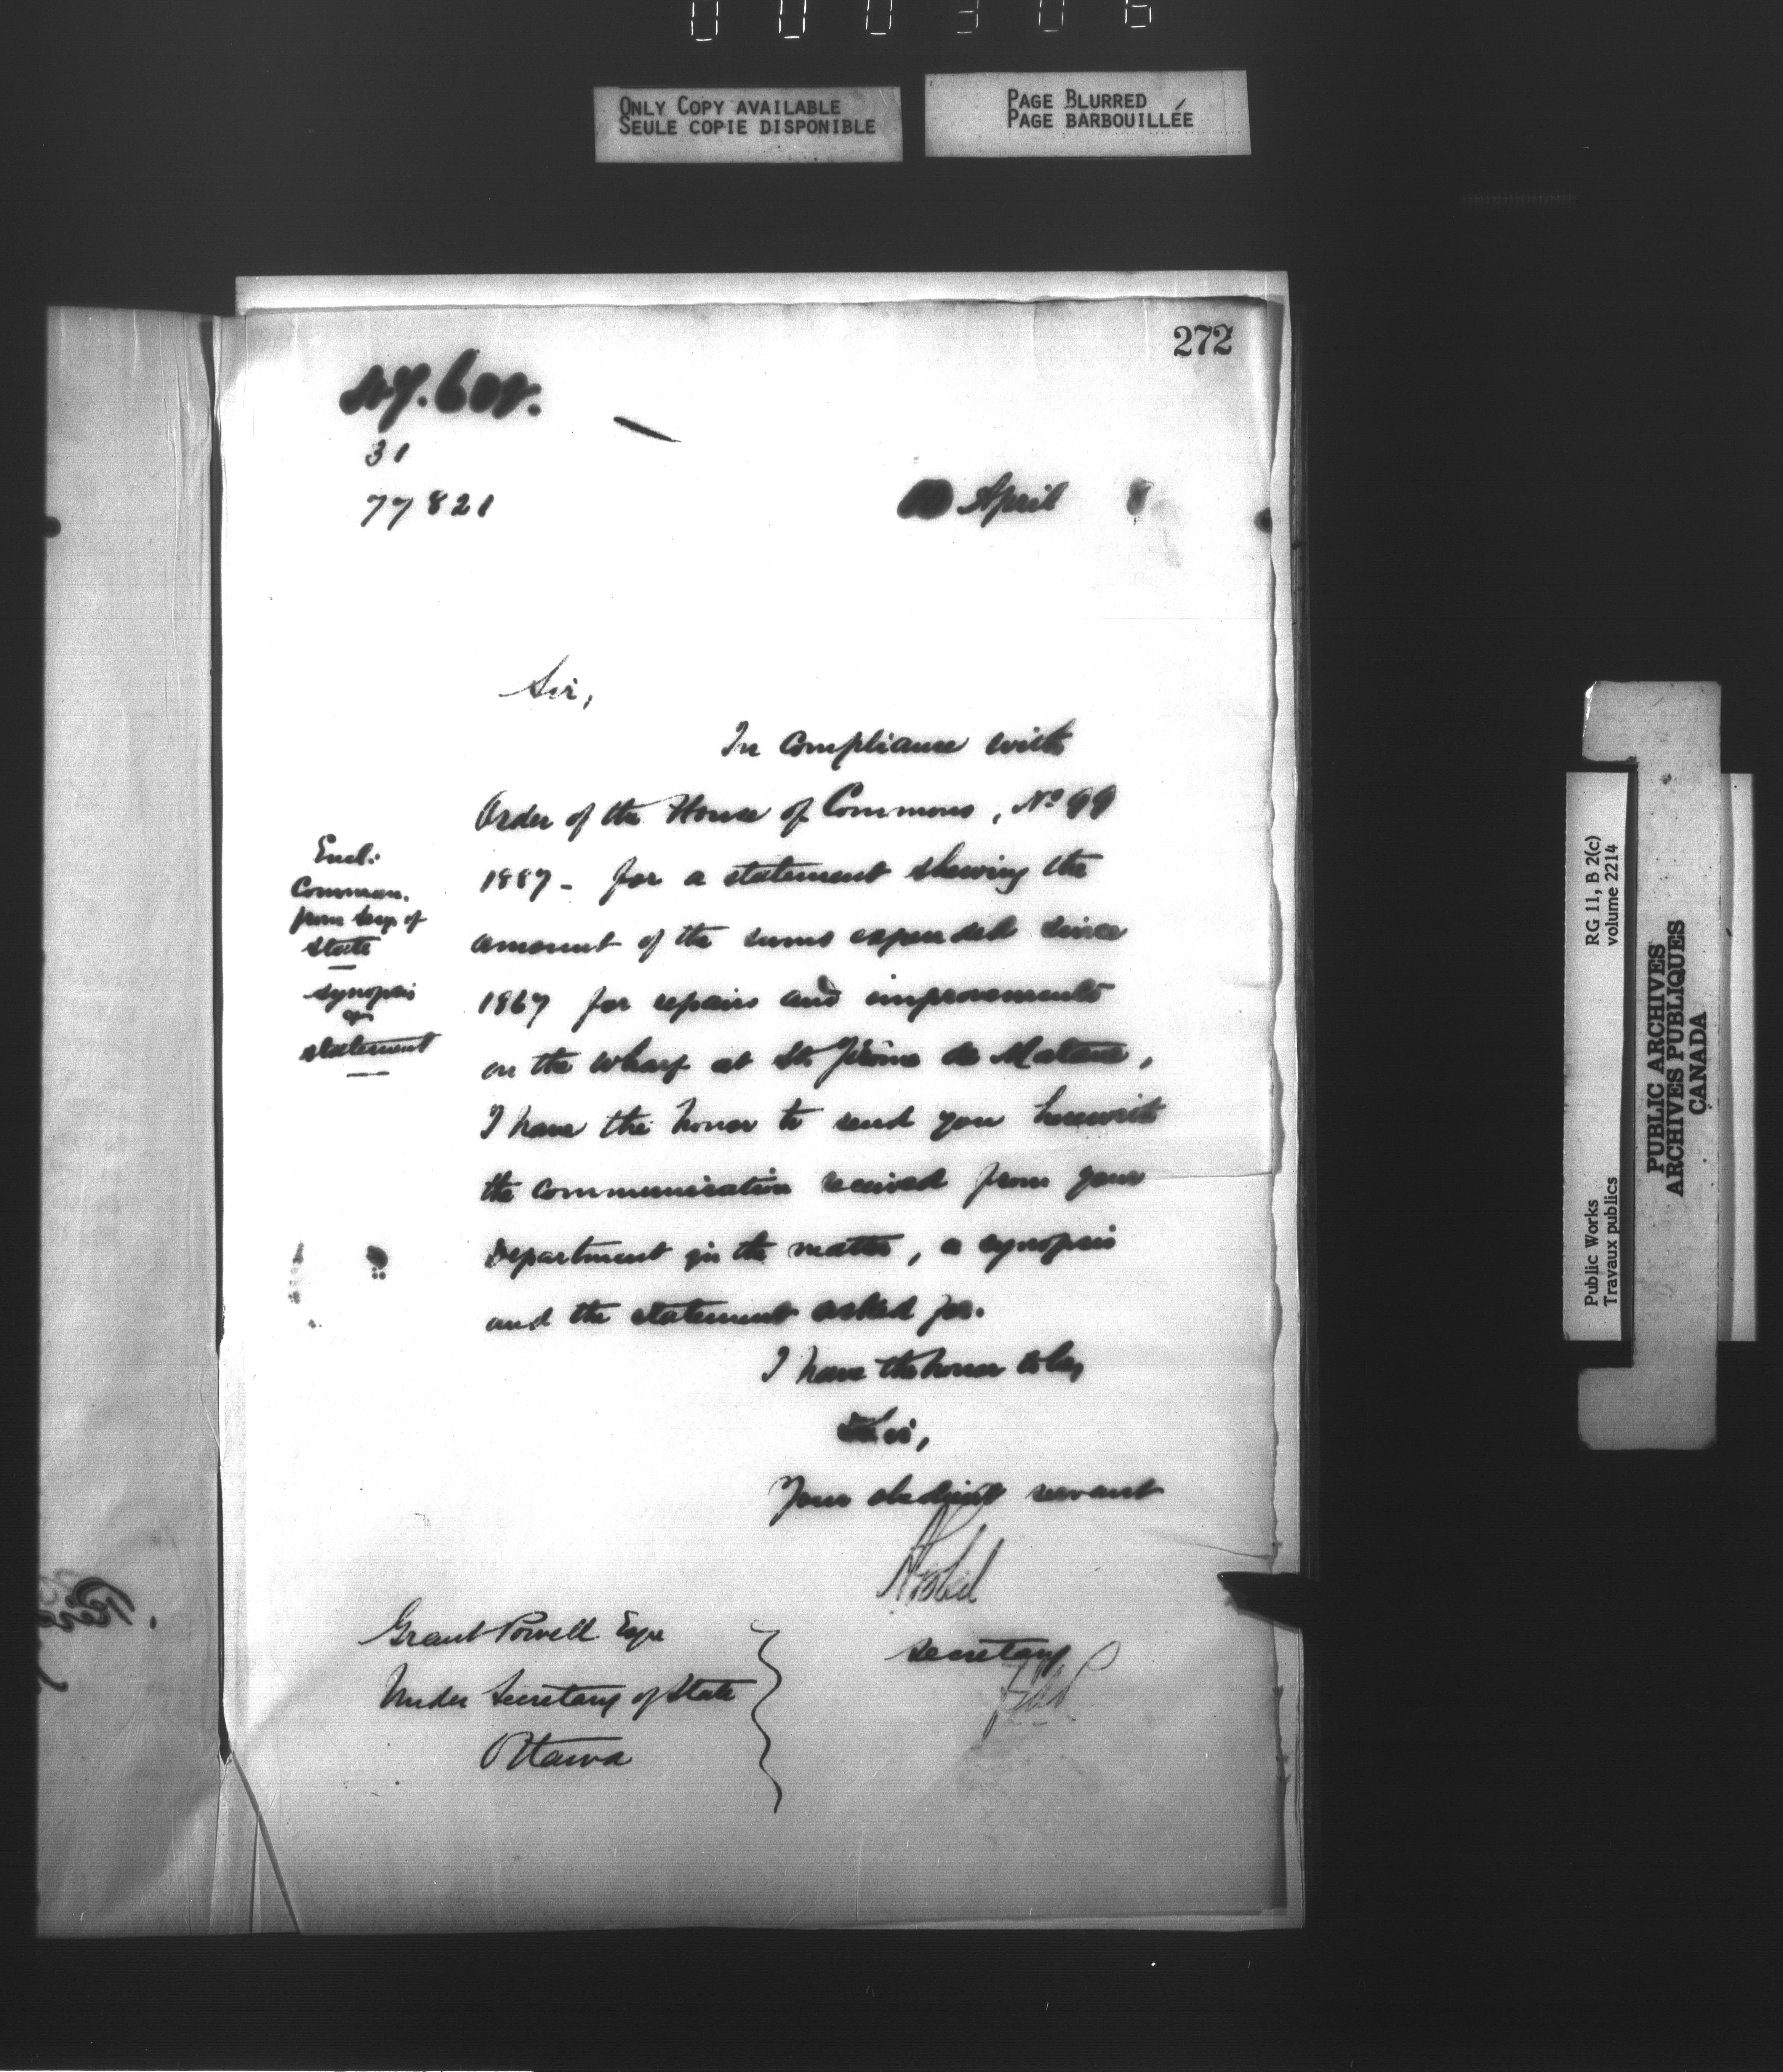 000306
ONLY COPY AVAILABLE
SEULE COPIE DISPONIBLE
PAGE BLURRED
PAGE BARBOUILLÉE
272
31
77821
April 8
Sir,
In compliance with
Order of the House of Commons, No 99
1887 - for a statement shewing the
amount of the sums expended since
1867 for repairs and improvements
on the wharf at St. Jérôme de Matane,
I have the honor to send you herewith
the communication received from your
Department in the matter, a synopsis
and the statement asked for.
Encl:
Commun.
from Secy of
State
synopsis
&
statement
I have the honor to be,
Sir,
Your obedient servant
Secretary
Grant Powell Esqre
Under Secretary of State
Ottawa
RG 11, B 2(c)
volume 2214
Public Works
Travaux publics
PUBLIC ARCHIVES
ARCHIVES PUBLIQUES
CANADA